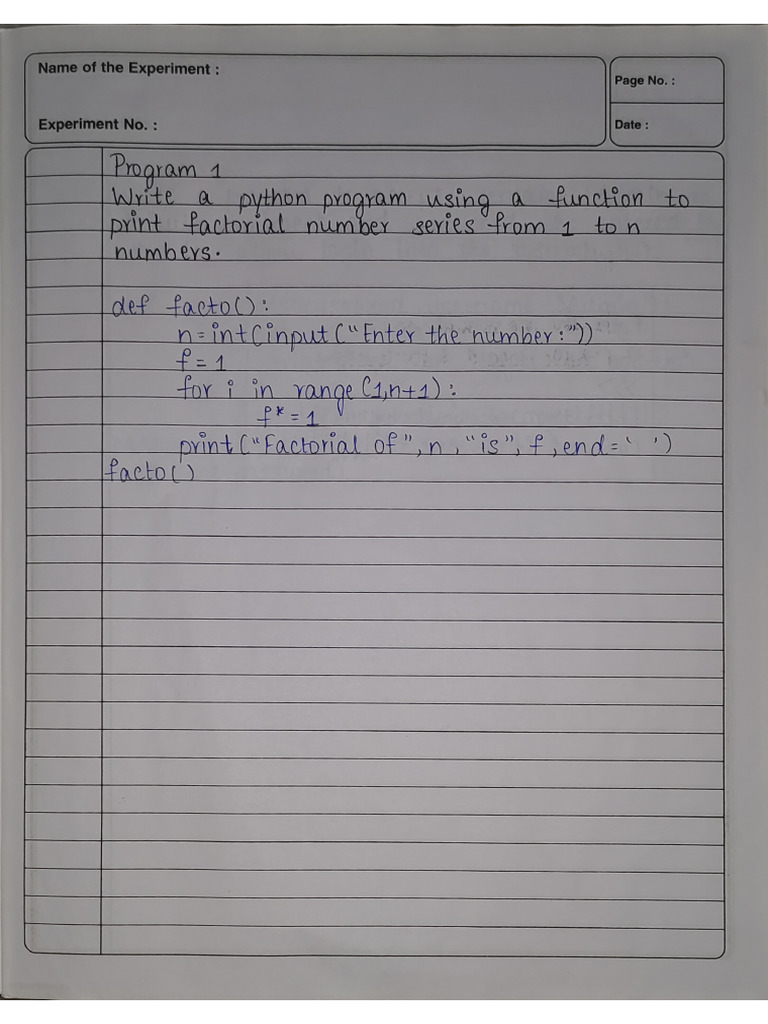 Name of the Experiment :
Page No. :
Experiment No. :
Date :
Program 1
Write a python program using a function to
print factorial number series from 1 to n
numbers.
def facto():
n=int(input("Enter the number:"))
f=1
for i in range(1,n+1):
f*=1
print("Factorial of",n,"is",f,end=' ')
facto()